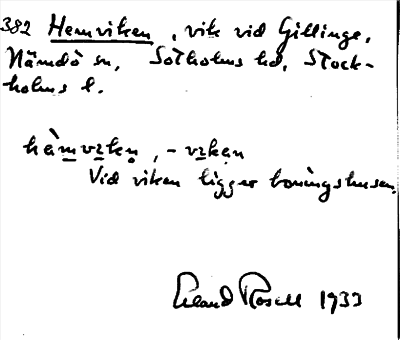 382 Hemviken, vik vid Gillinge,
Nämdö sn, Sotholms hd, Stock-
holms l.
hèmvɩkn̥, -vɩkən
Vid viken ligger boningshusen.
Erland Rosell 1933